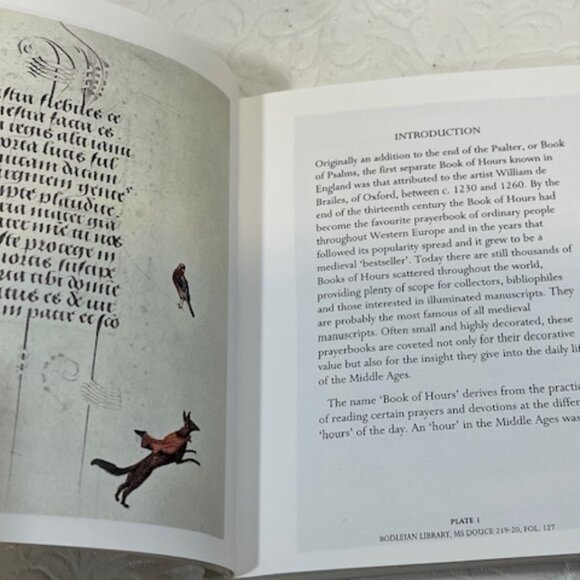 flebiles
es
regis alti ianu
lucis ful
uitam datam
gentes
plaudite
mater gra
mie tu nos
protege in
mortis suscipe
tibi domine
es de uir
cum patre et sco
INTRODUCTION
Originally an addition to the end of the Psalter, or Book
of Psalms, the first separate Book of Hours known in
England was that attributed to the artist William de
Brailes, of Oxford, between c. 1230 and 1260. By the
end of the thirteenth century the Book of Hours had
become the favourite prayerbook of ordinary people
throughout Western Europe and in the years that
followed its popularity spread and it grew to be a
medieval 'bestseller'. Today there are still thousands of
Books of Hours scattered throughout the world,
providing plenty of scope for collectors, bibliophiles
and those interested in illuminated manuscripts. They
are probably the most famous of all medieval
manuscripts. Often small and highly decorated, these
prayerbooks are coveted not only for their decorative
value but also for the insight they give into the daily lif
of the Middle Ages.
The name 'Book of Hours' derives from the practic
of reading certain prayers and devotions at the differe
'hours' of the day. An 'hour' in the Middle Ages was
PLATE 1
BODLEIAN LIBRARY, MS DOUCE 219-20, FOL. 127